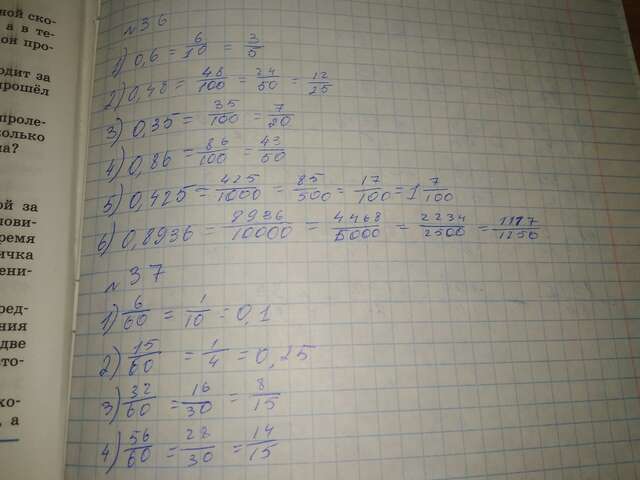 ной ско-
а в те-
ой про-
одит за
прошёл
проле-
колько
а?
ой за
лови-
ремя
ичка
ени-
ред-
ения
две
ото-
хо-
, а
№36
1) 0,6 = 6/10 = 3/5
2) 0,48 = 48/100 = 24/50 = 12/25
3) 0,35 = 35/100 = 7/20
4) 0,86 = 86/100 = 43/50
5) 0,425 = 425/1000 = 85/500 = 17/100 = 1 7/100
6) 0,8936 = 8936/10000 = 4468/5000 = 2234/2500 = 1117/1250
№37
1) 6/60 = 1/10 = 0,1
2) 15/60 = 1/4 = 0,25
3) 32/60 = 16/30 = 8/15
4) 56/60 = 28/30 = 14/15